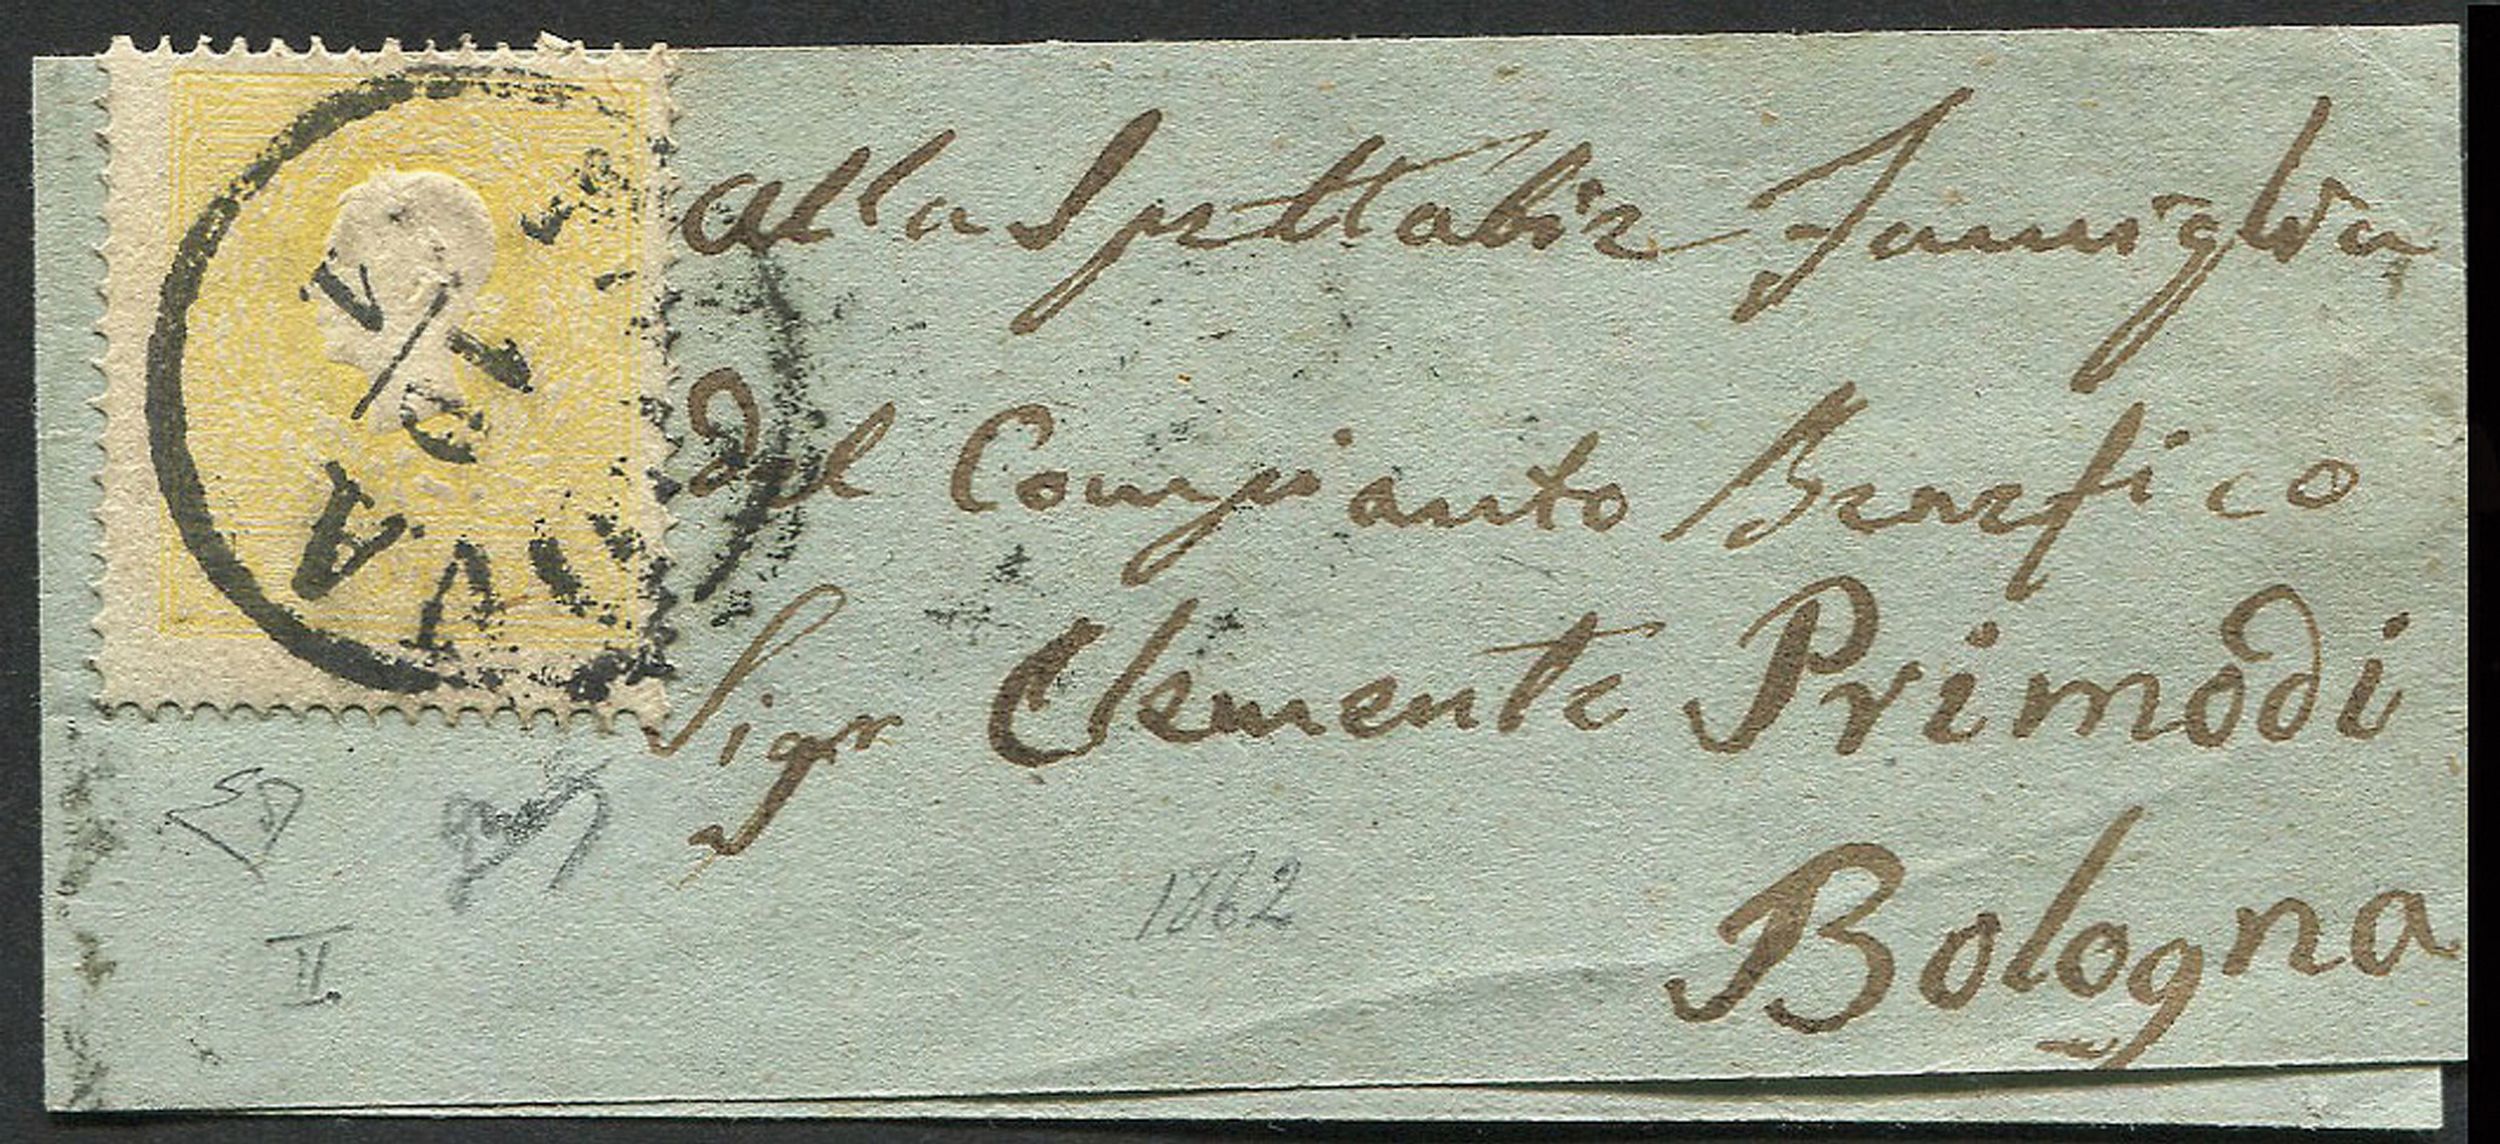 alla Spettabile Famiglia
del Compianto Benefico
Sigr Clemente Primodi
Bologna
1862
II